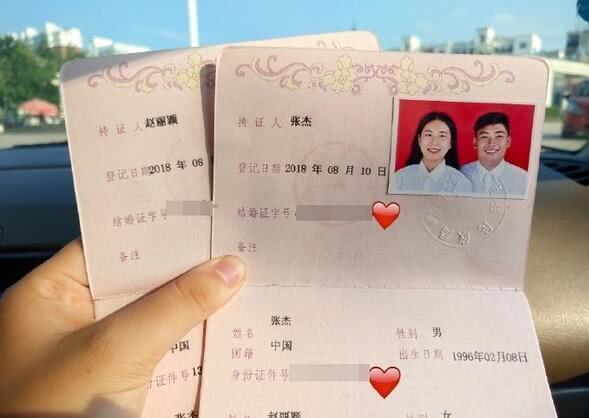 持证人 赵丽颖
登记日期 2018 年 08
结婚证字号
备注
中国
身份证件号 13
张杰
持证人 张杰
登记日期 2018 年 08 月 10 日
结婚证字号
备注
姓名 张杰 性别 男
国籍 中国 出生日期 1996年02月08日
身份证件号
姓名 赵丽颖 性别 女